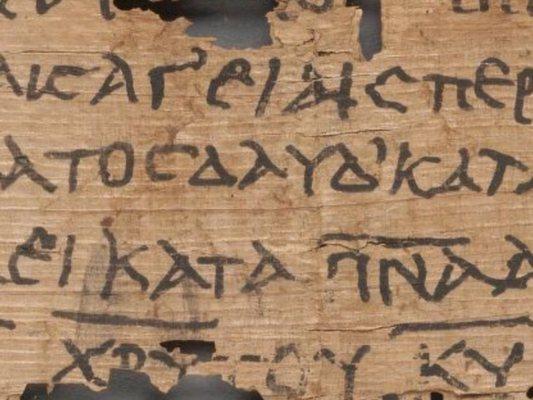 ΑΙϹ ΑΓΕΙΑΙϹ ΠΕΡ
ΑΤΟϹ ΔΑΥΔ' ΚΑΤΑ
ΕΙ ΚΑΤΑ Π̅Ν̅Α̅ Α
Χ̅Ρ̅Υ̅ ΤΟΥ Κ̅Υ̅